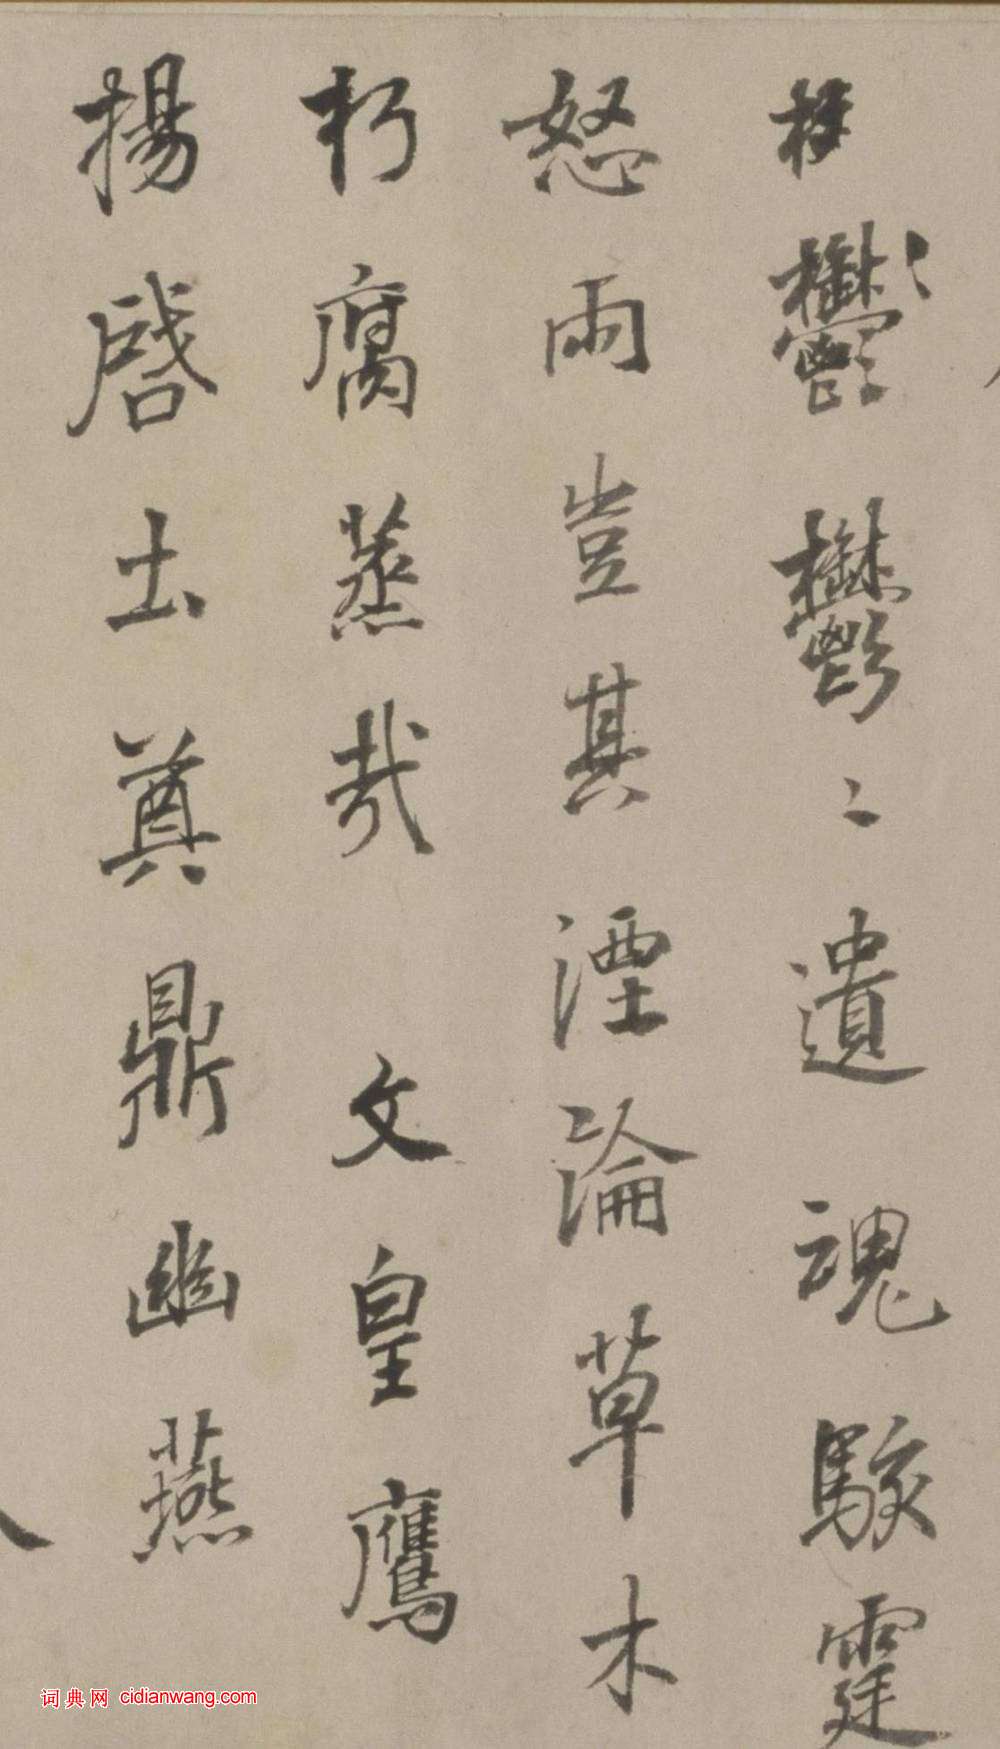 鬱鬱〻遺魂駭霆
怒雨豈其湮淪草木
朽腐蒸哉 文皇鷹
揚啓土奠鼎幽燕
词典网 cidianwang.com